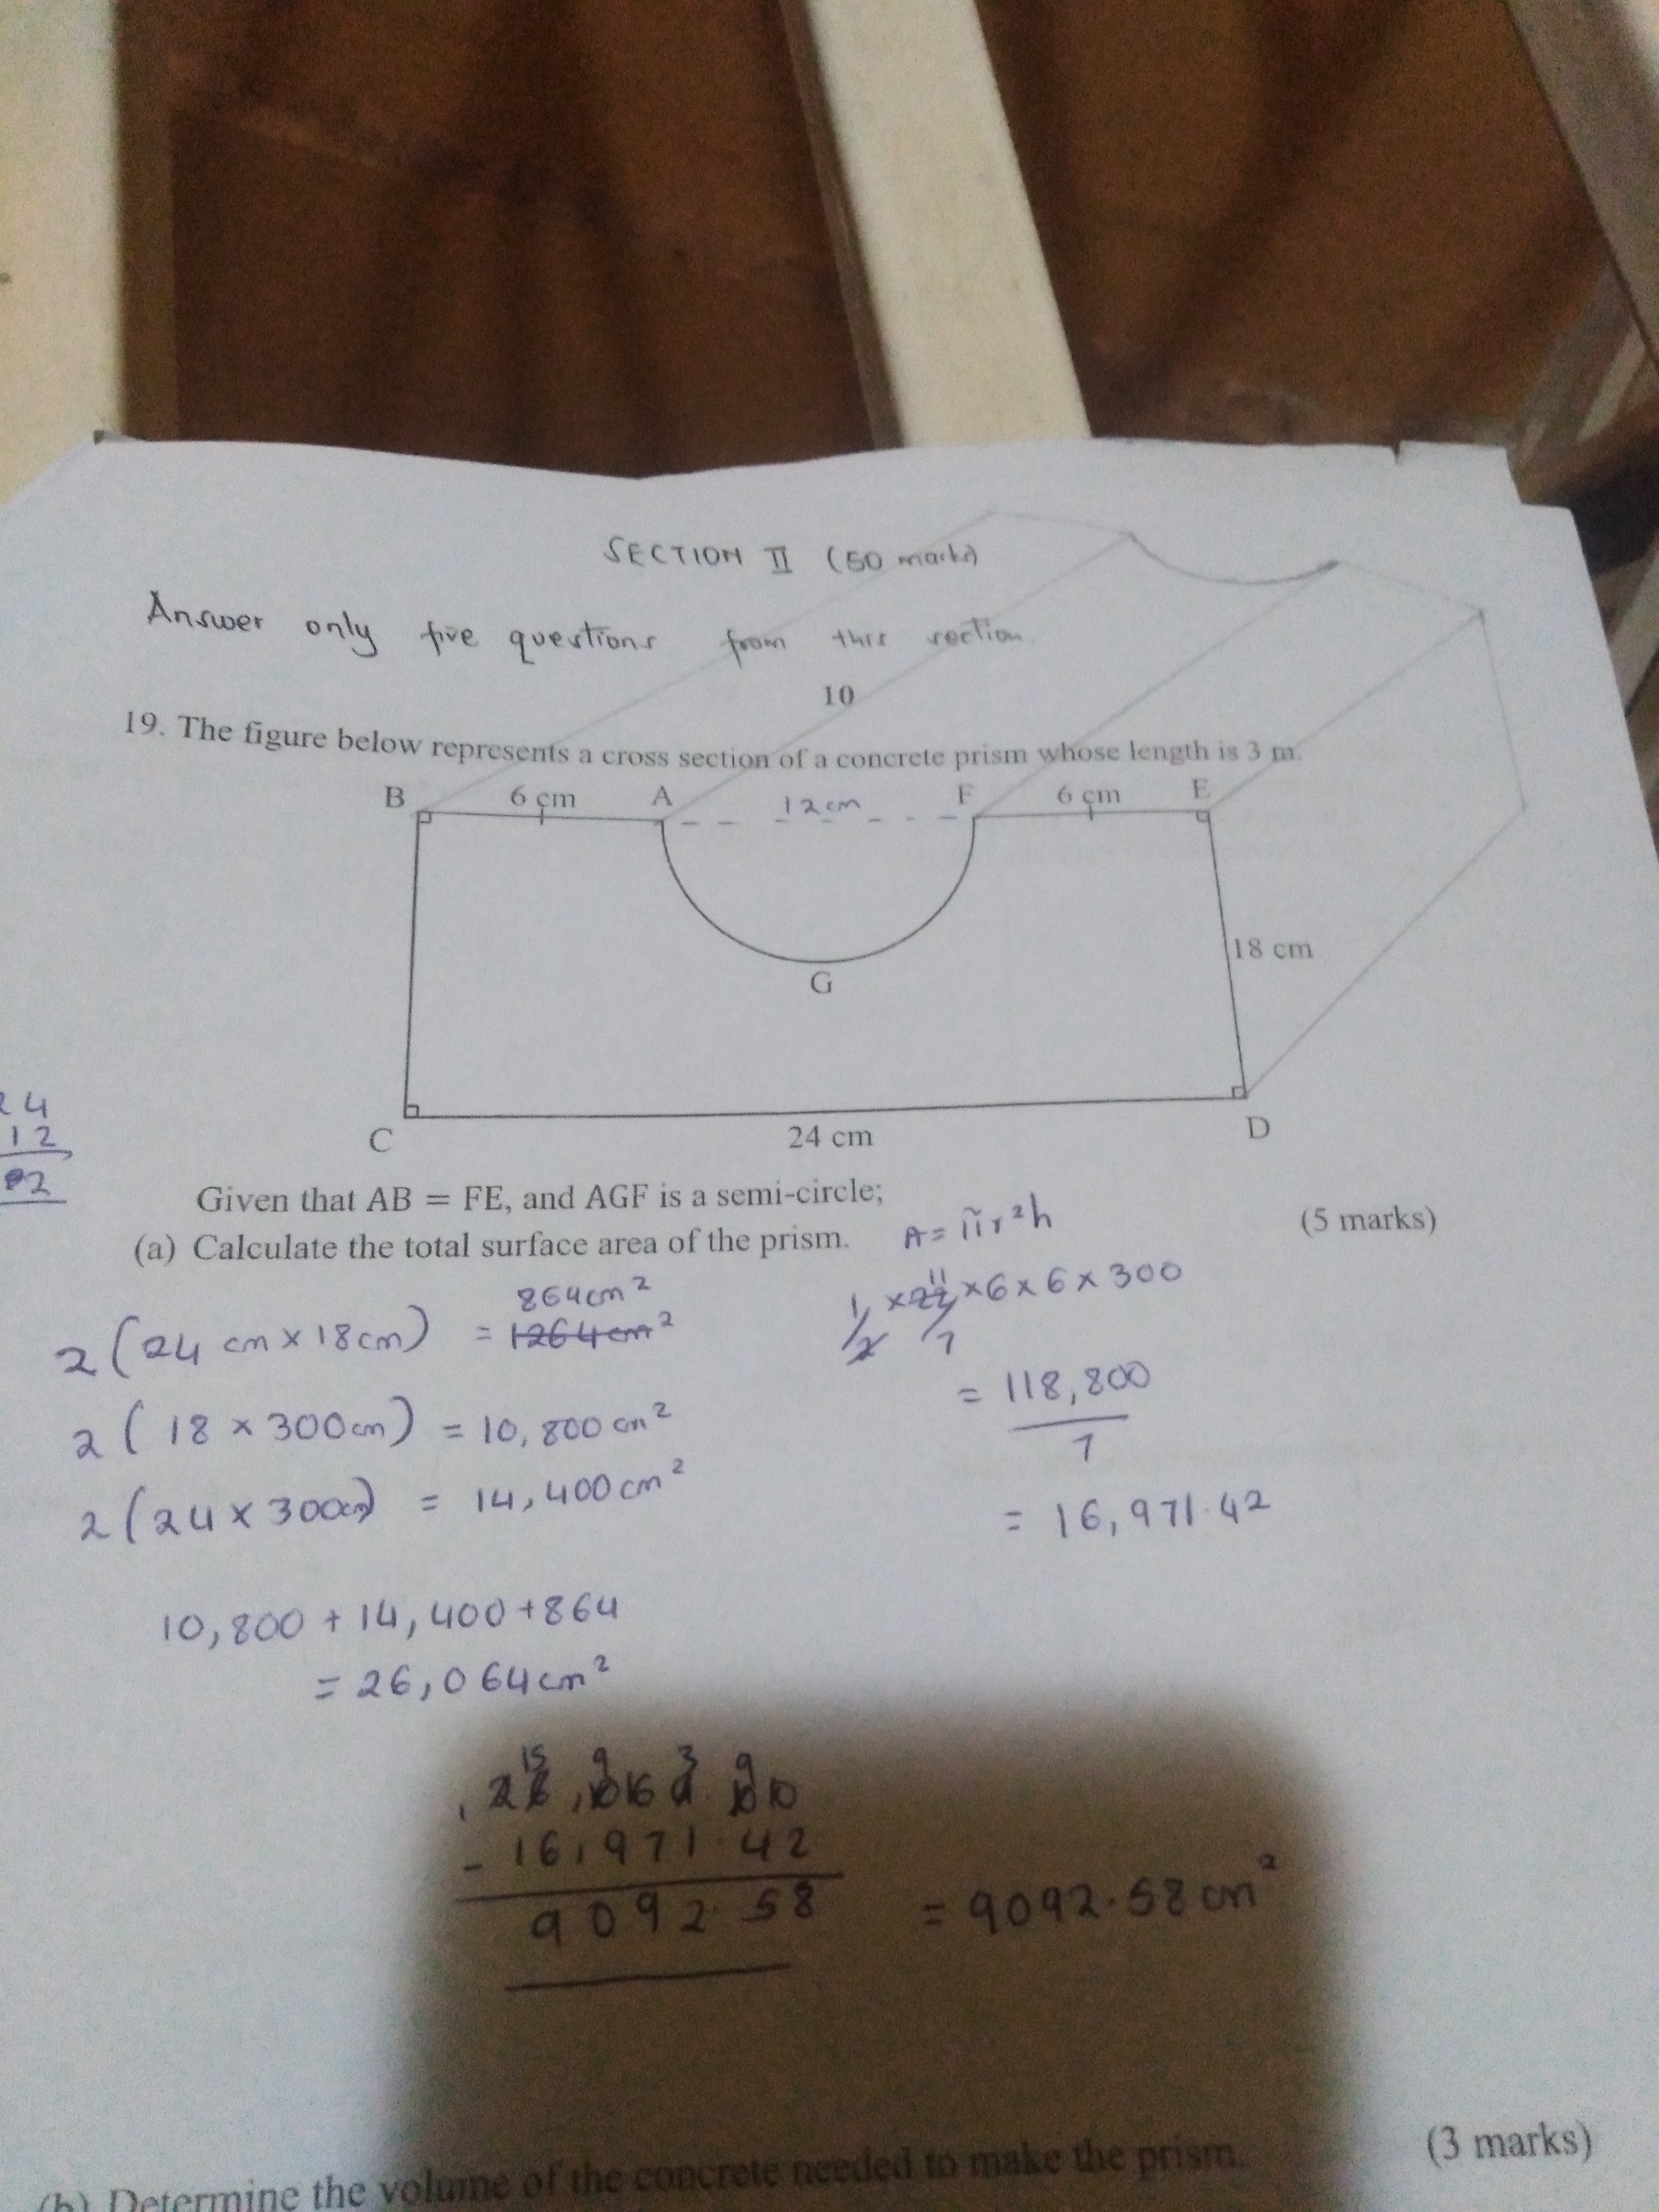 SECTION II (50 marks)
Answer only five questions from this section.
10
19. The figure below represents a cross section of a concrete prism whose length is 3 m.
B 6 cm A 12cm F 6 cm E
18 cm
G
C 24 cm D
24
12
Given that AB = FE, and AGF is a semi-circle;
(a) Calculate the total surface area of the prism. (5 marks)
A = πr²h
864cm²
2(24 cm x 18cm) = 1264cm²
1/2 x 22/7 x 6 x 6 x 300
11
= 118,800
7
2( 18 x 300cm) = 10,800 cm²
2(24 x 300cm) = 14,400cm²
= 16,971.42
10,800 + 14,400 + 864
= 26,064cm²
- 16,971.42
9092.58 = 9092.58cm²
(b) Determine the volume of the concrete needed to make the prism. (3 marks)